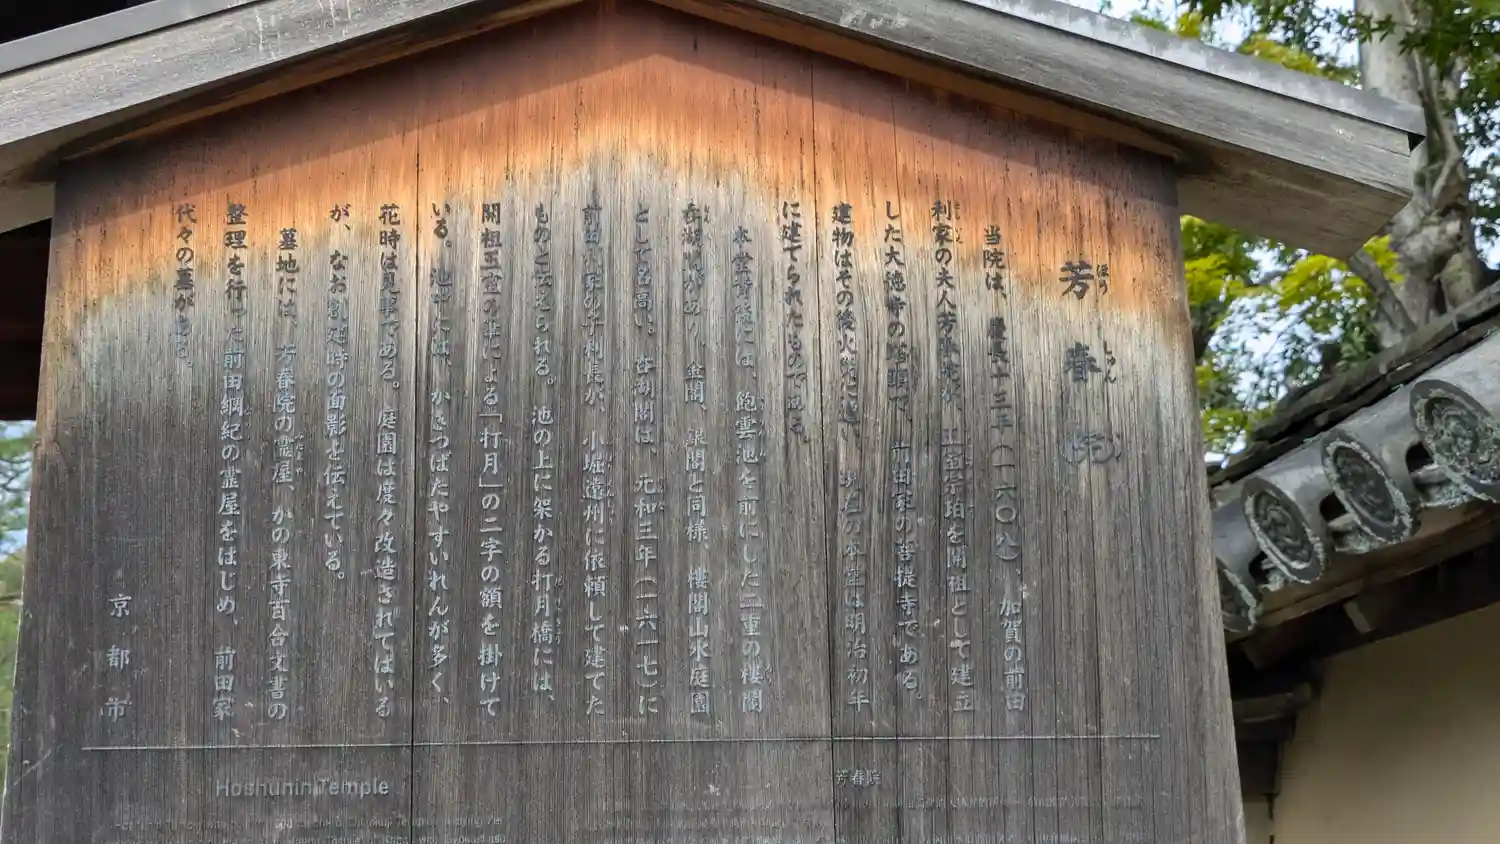 芳春院
ほう しゅん
当院は、慶長十三年(一六〇八)、加賀の前田
利家の夫人芳春院が、玉室宗珀を開祖として建立
した大徳寺の塔頭で、前田家の菩提寺である。
建物はその後火災に遭い、現在の本堂は明治初年
に建てられたものである。
本堂背後には、飽雲池を前にした二重の楼閣
呑湖閣があり、金閣、銀閣と同様、楼閣山水庭園
として名高い。呑湖閣は、元和三年(一六一七)に
前田利家の子利長が、小堀遠州に依頼して建てた
ものと伝えられる。池の上に架かる打月橋には、
開祖玉室の筆による「打月」の二字の額を掛けて
いる。池中には、かきつばたやすいれんが多く、
花時は見事である。庭園は度々改造されてはいる
が、なお創建時の面影を伝えている。
墓地には、芳春院の霊屋、かの東寺百合文書の
整理を行った前田綱紀の霊屋をはじめ、前田家
代々の墓がある。
京都市
Hoshunin Temple
芳春院